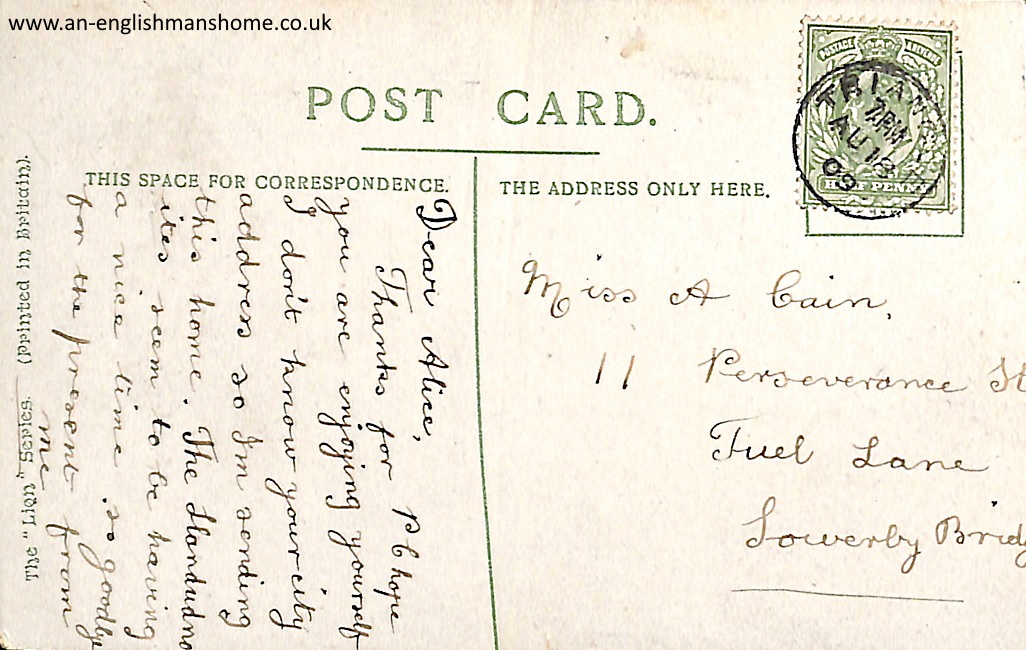 www.an-englishmanshome.co.uk
POST CARD.
THIS SPACE FOR CORRESPONDENCE.
THE ADDRESS ONLY HERE.
Dear Alice,
Thanks for P C hope
you are enjoying yourself
I don't know your city
address so I'm sending
this home. The Llandudno
ites seem to be having
a nice time. so goodbye
for the present from
me
The "Lion" Series. (Printed in Britain).
POSTAGE
HALF PENNY
AU 13
09
Miss A Cain,
11 Perseverance St
Fuel Lane
Sowerby Bridg